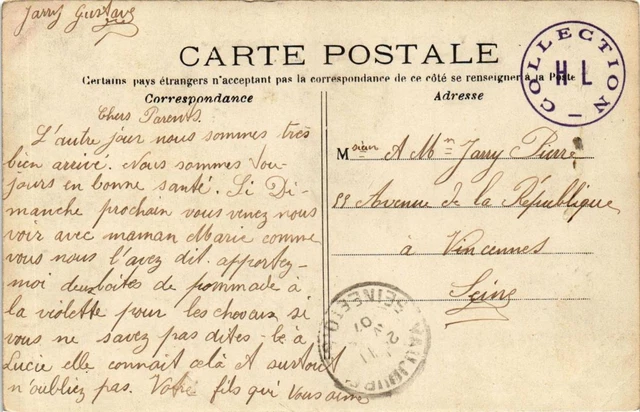 Jarry Gustave
CARTE POSTALE
COLLECTION
H L
Certains pays étrangers n'acceptant pas la correspondance de ce côté se renseigner à la Poste
Correspondance
Adresse
Chers Parents.
L'autre jour nous sommes très
bien arrivé. Nous sommes tou-
jours en bonne santé. Si Di-
manche prochain vous venez nous
voir avec maman Marie comme
vous nous l'avez dit. apportez-
moi deux boites de pommade à
la violette pour les cheveux si
vous ne savez pas dites-le à
Lucie elle connait celà Et surtout
n'oubliez pas. Votre fils qui vous aime
Monsieur A Mr Jarry Pierre
Avenue de la République
à Vincennes
Seine
SEINE ET O